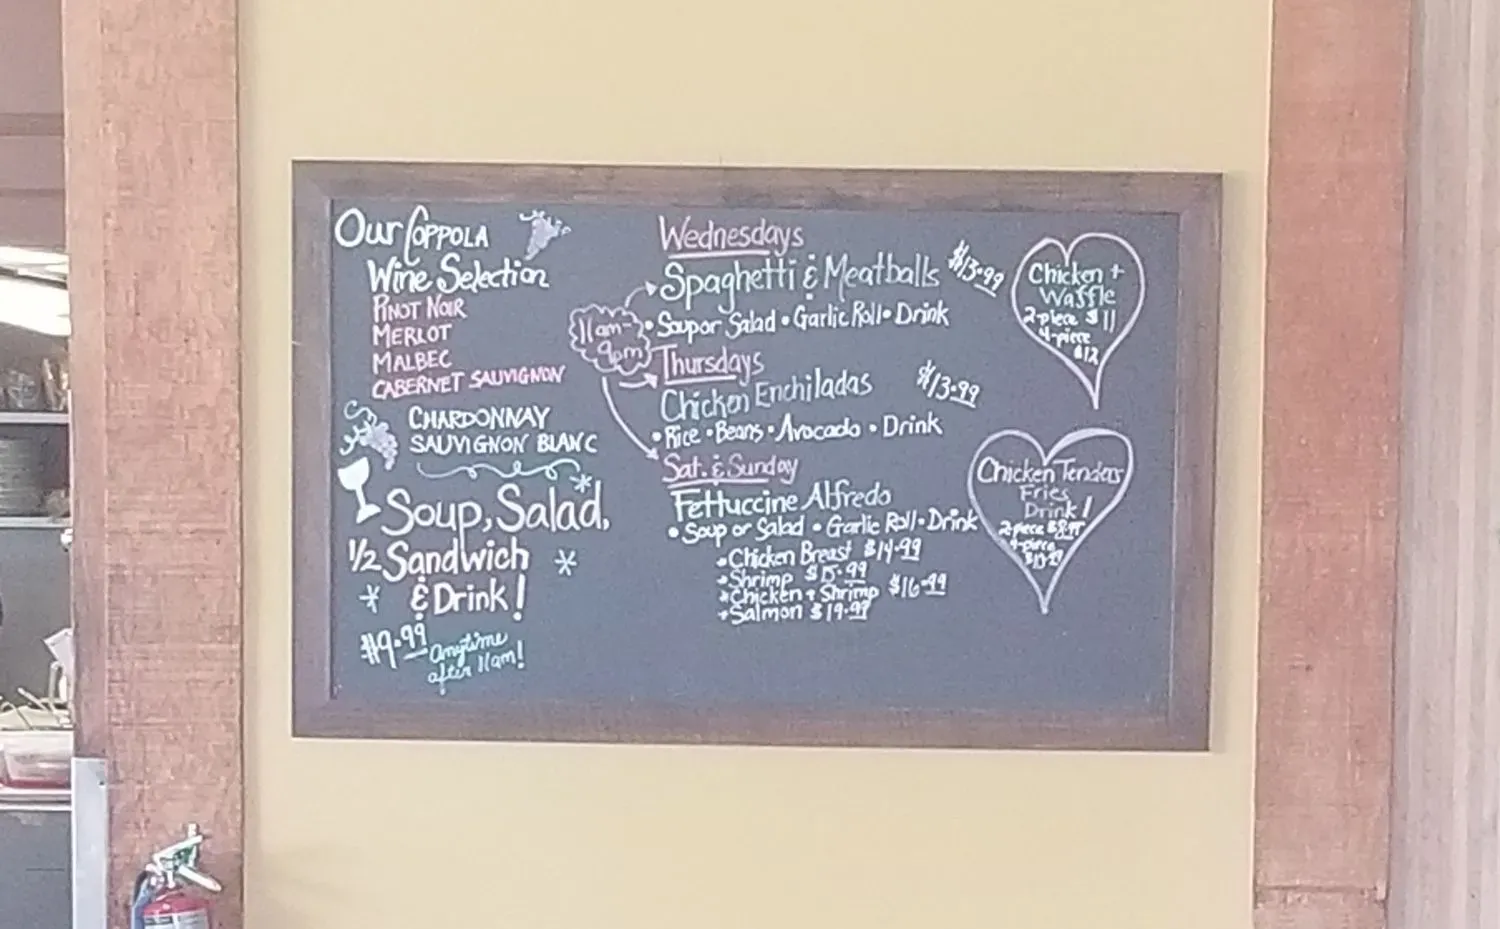 Our COPPOLA
Wine Selection
PINOT NOIR
MERLOT
MALBEC
CABERNET SAUVIGNON
CHARDONNAY
SAUVIGNON BLANC
Soup, Salad,
1/2 Sandwich
& Drink!
$9.99 Anytime
after 11am!
11am-
9pm
Wednesdays
Spaghetti & Meatballs $13.99
• Soup or Salad • Garlic Roll • Drink
Thursdays
Chicken Enchiladas $13.99
• Rice • Beans • Avocado • Drink
Sat. & Sunday
Fettuccine Alfredo
• Soup or Salad • Garlic Roll • Drink
Chicken Breast $14.99
Shrimp $15.99
Chicken + Shrimp $16.99
Salmon $19.99
Chicken +
Waffle
2-piece $11
4-piece
$12
Chicken Tenders
Fries
Drink!
2-piece
4-piece